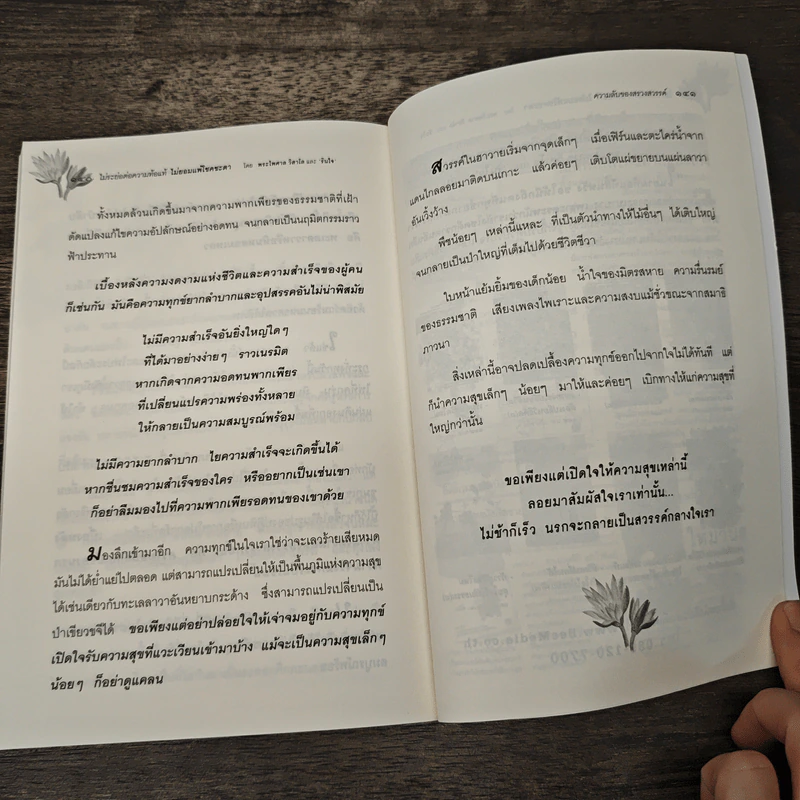 ไม่ระย่อต่อความท้อแท้ ไม่ยอมแพ้โชคชะตา โดย พระไพศาล วิสาโล และ 'รินใจ'
ทั้งหมดล้วนเกิดขึ้นมาจากความพากเพียรของธรรมชาติที่เฝ้า
ดัดแปลงแก้ไขความอัปลักษณ์อย่างอดทน จนกลายเป็นนฤมิตกรรมราว
ฟ้าประทาน
เบื้องหลังความงดงามแห่งชีวิตและความสำเร็จของผู้คน
ก็เช่นกัน มันคือความทุกข์ยากลำบากและอุปสรรคอันไม่น่าพิสมัย
ไม่มีความสำเร็จอันยิ่งใหญ่ใดๆ
ที่ได้มาอย่างง่ายๆ ราวเนรมิต
หากเกิดจากความอดทนพากเพียร
ที่เปลี่ยนแปรความพร่องทั้งหลาย
ให้กลายเป็นความสมบูรณ์พร้อม
ไม่มีความยากลำบาก ไยความสำเร็จจะเกิดขึ้นได้
หากชื่นชมความสำเร็จของใคร หรืออยากเป็นเช่นเขา
ก็อย่าลืมมองไปที่ความพากเพียรอดทนของเขาด้วย
มองลึกเข้ามาอีก ความทุกข์ในใจเราใช่ว่าจะเลวร้ายเสียหมด
มันไม่ได้ย่ำแย่ไปตลอด แต่สามารถแปรเปลี่ยนให้เป็นพื้นภูมิแห่งความสุข
ได้เช่นเดียวกับทะเลลาวาอันหยาบกระด้าง ซึ่งสามารถแปรเปลี่ยนเป็น
ป่าเขียวขจีได้ ขอเพียงแต่อย่าปล่อยใจให้เจ่าจมอยู่กับความทุกข์
เปิดใจรับความสุขที่แวะเวียนเข้ามาบ้าง แม้จะเป็นความสุขเล็กๆ
น้อยๆ ก็อย่าดูแคลน
ความลับของสรวงสวรรค์ ๑๔๑
สวรรค์ในฮาวายเริ่มจากจุดเล็กๆ เมื่อเฟิร์นและตะไคร่น้ำจาก
แดนไกลลอยมาติดบนเกาะ แล้วค่อยๆ เติบโตแผ่ขยายบนแผ่นลาวา
อันเวิ้งว้าง
พืชน้อยๆ เหล่านี้แหละ ที่เป็นตัวนำทางให้ไม้อื่นๆ ได้เติบใหญ่
จนกลายเป็นป่าใหญ่ที่เต็มไปด้วยชีวิตชีวา
ใบหน้าแย้มยิ้มของเด็กน้อย น้ำใจของมิตรสหาย ความรื่นรมย์
ของธรรมชาติ เสียงเพลงไพเราะและความสงบแม้ชั่วขณะจากสมาธิ
ภาวนา
สิ่งเหล่านี้อาจปลดเปลื้องความทุกข์ออกไปจากใจไม่ได้ทันที แต่
ก็นำความสุขเล็กๆ น้อยๆ มาให้และค่อยๆ เบิกทางให้แก่ความสุขที่
ใหญ่กว่านั้น
ขอเพียงแต่เปิดใจให้ความสุขเหล่านี้
ลอยมาสัมผัสใจเราเท่านั้น...
ไม่ช้าก็เร็ว นรกจะกลายเป็นสวรรค์กลางใจเรา